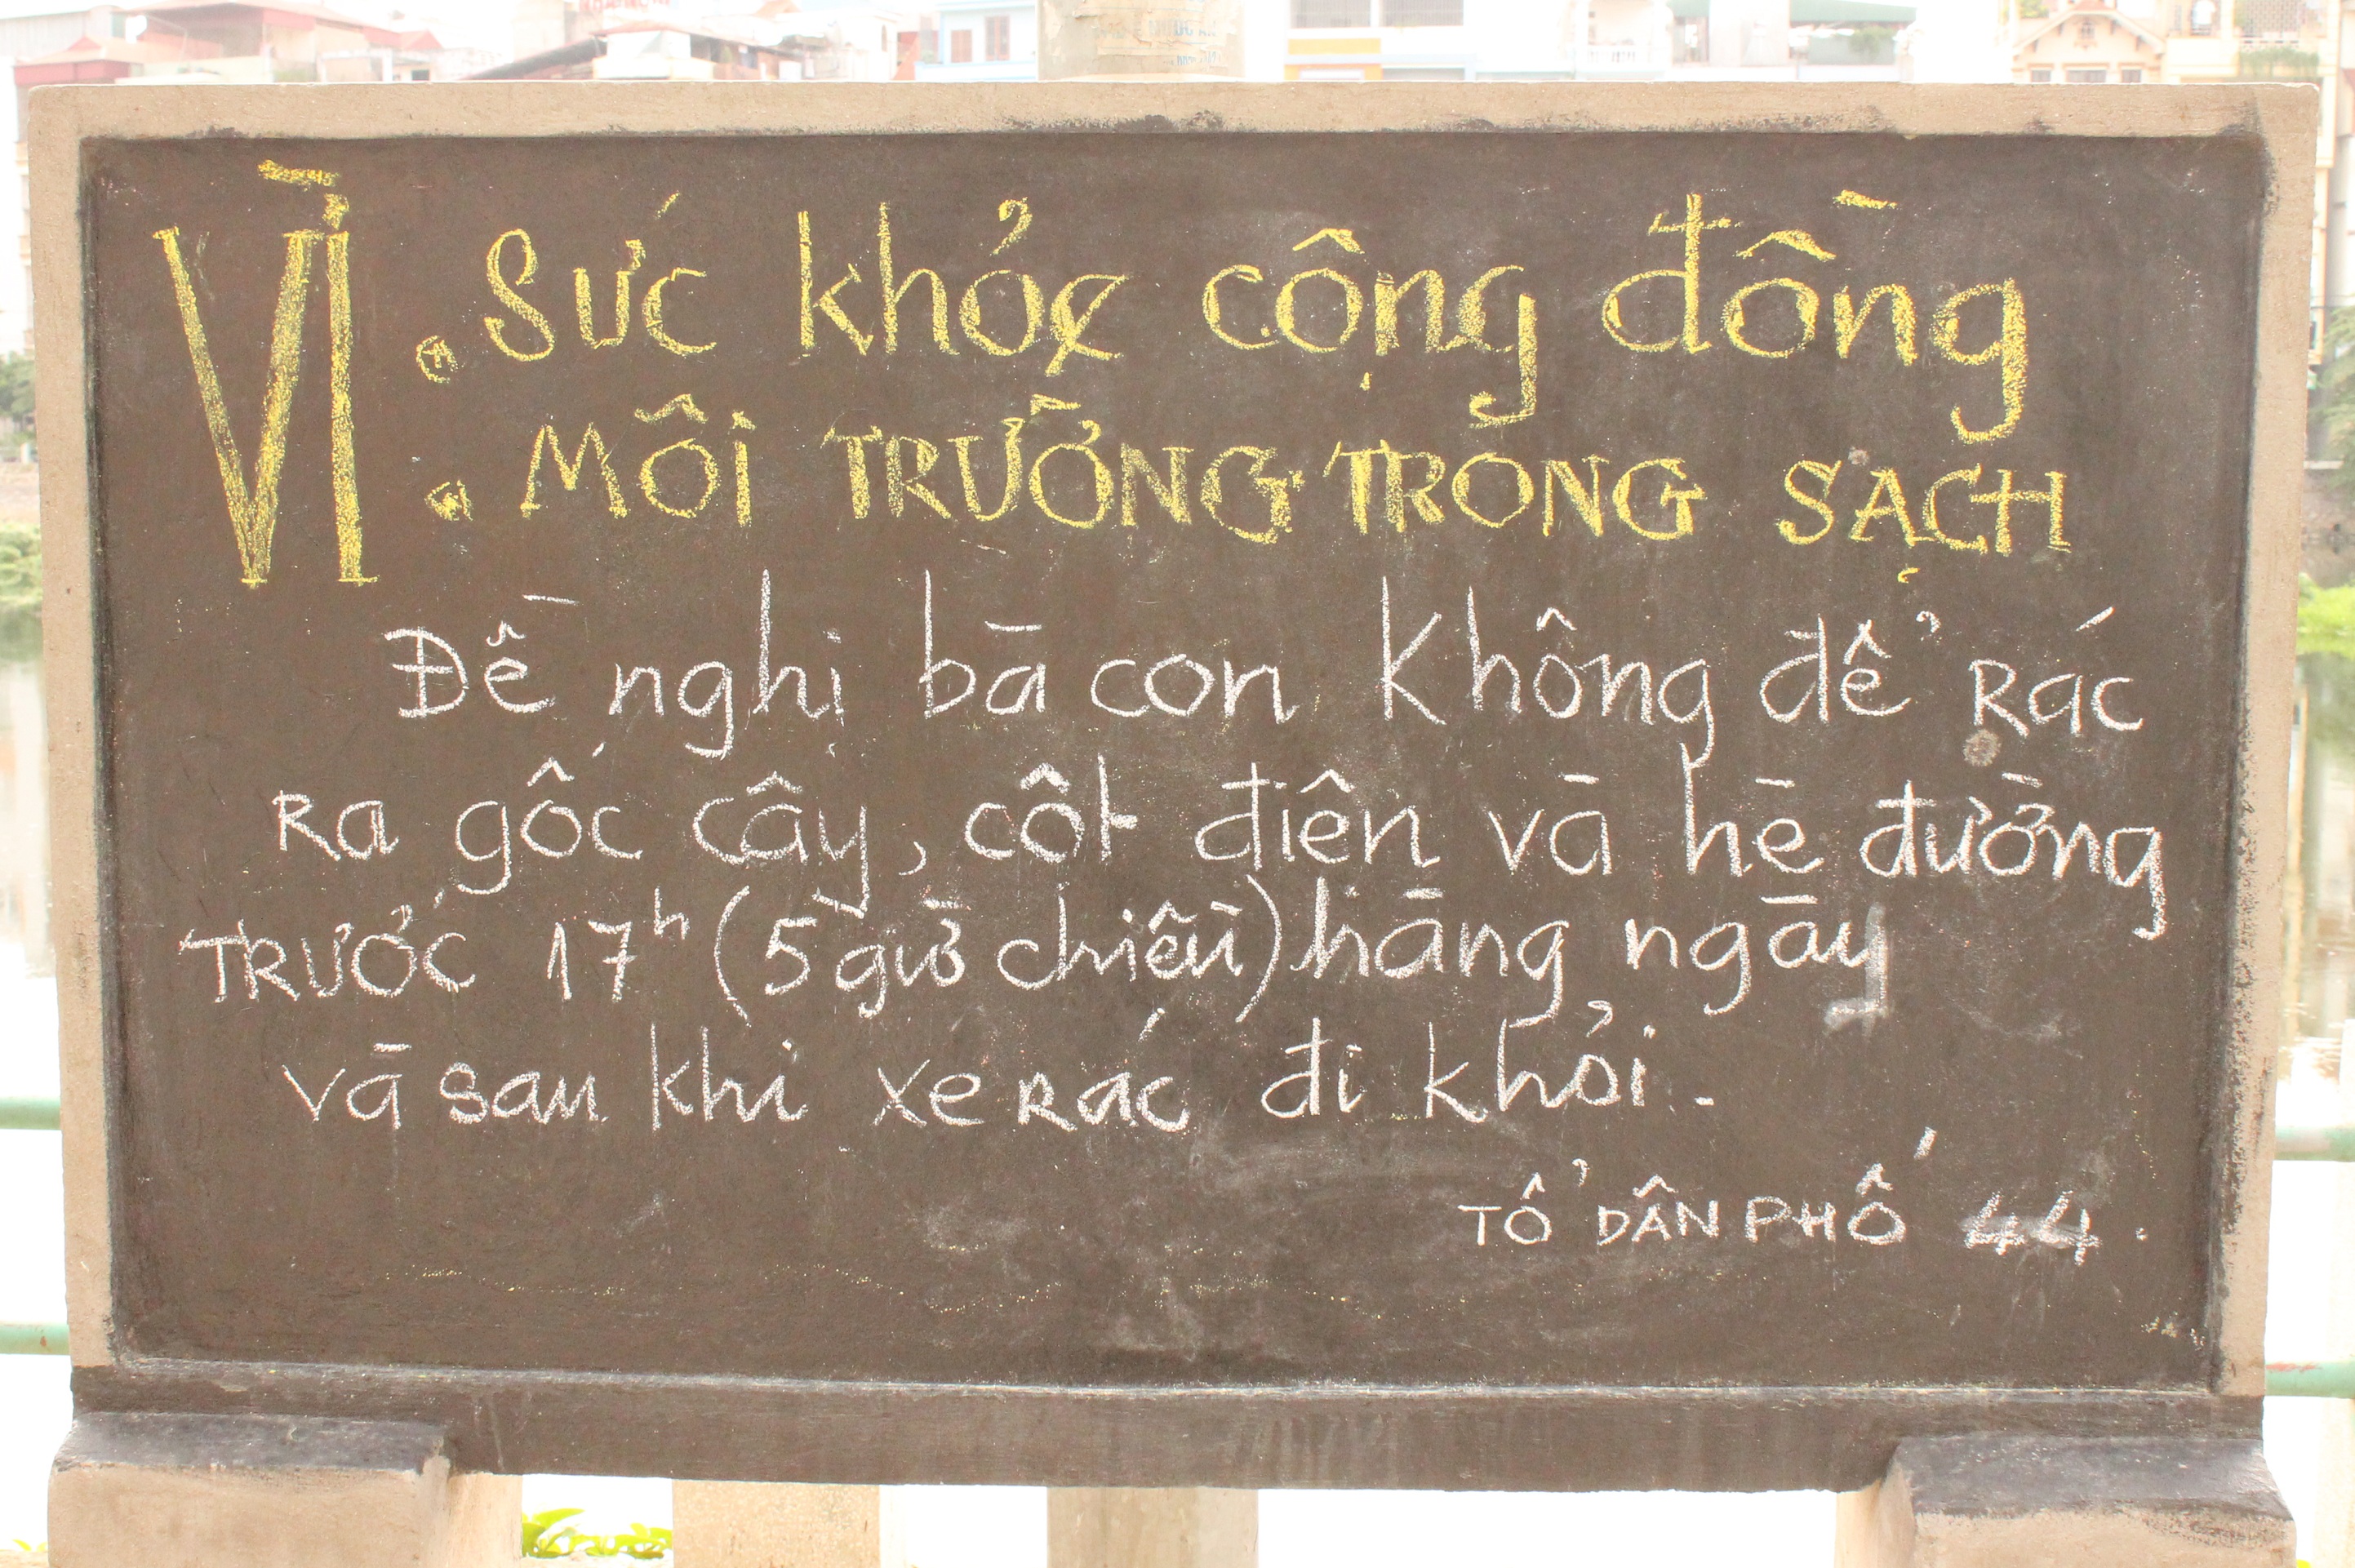 VÌ
. Sức khỏe cộng đồng
. MÔI TRƯỜNG TRONG SẠCH
Đề nghị bà con không để rác
ra gốc cây, cột điện và hè đường
TRƯỚC 17h (5 giờ chiều) hàng ngày
và sau khi xe rác đi khỏi.
TỔ DÂN PHỐ 44.